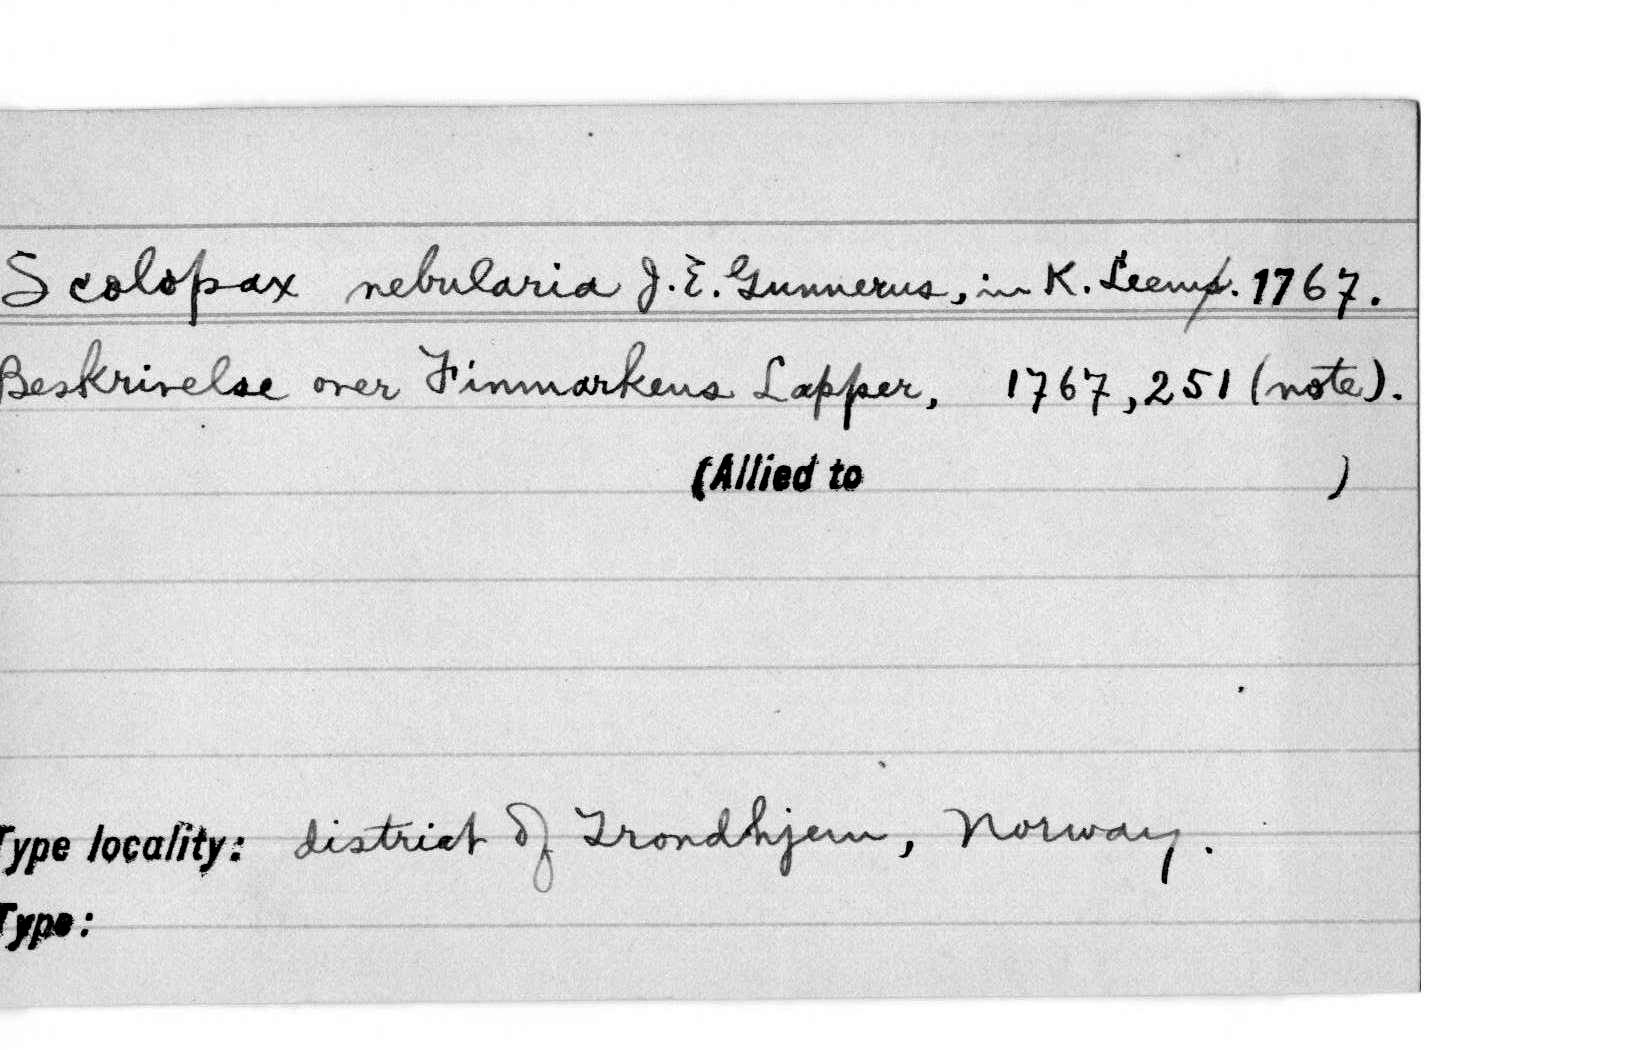 Scolopax nebularia J. E. Gunnerus, in K. Leems. 1767.
Beskrivelse over Finmarkens Lapper, 1767, 251 (note).
(Allied to )
Type locality: district of Trondhjem, Norway.
Type: